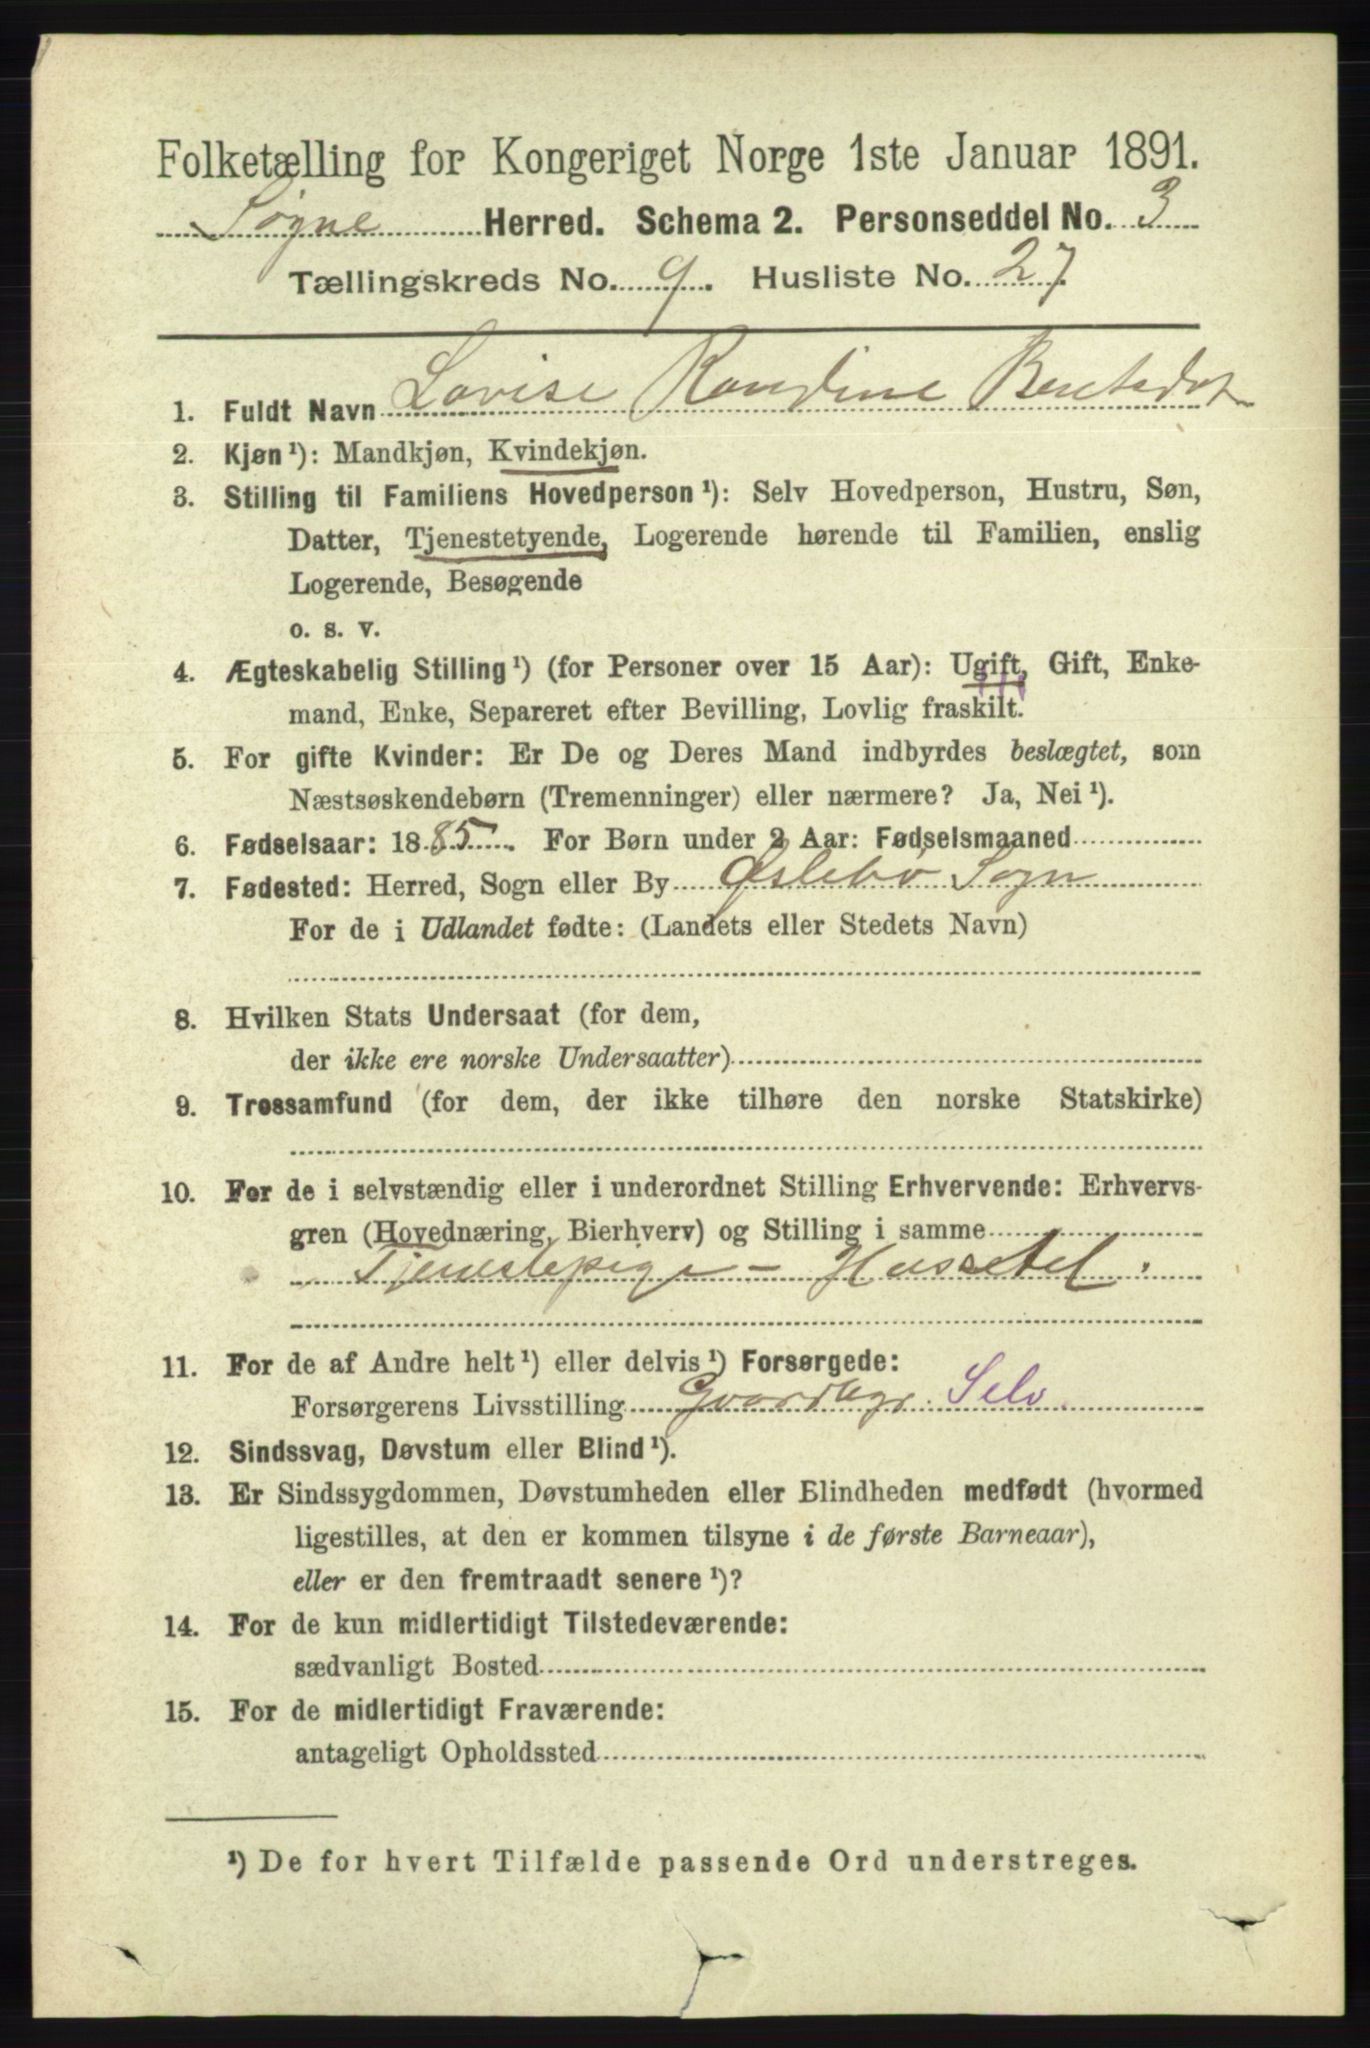 Folketælling for Kongeriget Norge 1ste Januar 1891.
Søgne Herred. Schema 2. Personseddel No. 3
Tællingskreds No. 9. Husliste No. 27.
1. Fuldt Navn Lovise Randine Bentsdt
2. Kjøn ¹): Mandkjøn, Kvindekjøn.
3. Stilling til Familiens Hovedperson ¹): Selv Hovedperson, Hustru, Søn,
Datter, Tjenestetyende, Logerende hørende til Familien, enslig
Logerende, Besøgende
o. s. v.
4. Ægteskabelig Stilling ¹) (for Personer over 15 Aar): Ugift, Gift, Enke-
mand, Enke, Separeret efter Bevilling, Lovlig fraskilt.
5. For gifte Kvinder: Er De og Deres Mand indbyrdes beslægtet, som
Næstsøskendebørn (Tremenninger) eller nærmere? Ja, Nei ¹).
6. Fødselsaar: 1885. For Børn under 2 Aar: Fødselsmaaned
7. Fødested: Herred, Sogn eller By Øslebø Sogn
For de i Udlandet fødte: (Landets eller Stedets Navn)
8. Hvilken Stats Undersaat (for dem,
der ikke ere norske Undersaatter)
9. Trossamfund (for dem, der ikke tilhøre den norske Statskirke)
10. For de i selvstændig eller i underordnet Stilling Erhvervende: Erhvervs-
gren (Hovednæring, Bierhverv) og Stilling i samme
Tjenestepige - Husstel.
11. For de af Andre helt ¹) eller delvis ¹) Forsørgede:
Forsørgerens Livsstilling Gaardbgr. Selv.
12. Sindssvag, Døvstum eller Blind ¹).
13. Er Sindssygdommen, Døvstumheden eller Blindheden medfødt (hvormed
ligestilles, at den er kommen tilsyne i de første Barneaar),
eller er den fremtraadt senere ¹)?
14. For de kun midlertidigt Tilstedeværende:
sædvanligt Bosted
15. For de midlertidigt Fraværende:
antageligt Opholdssted
¹) De for hvert Tilfælde passende Ord understreges.